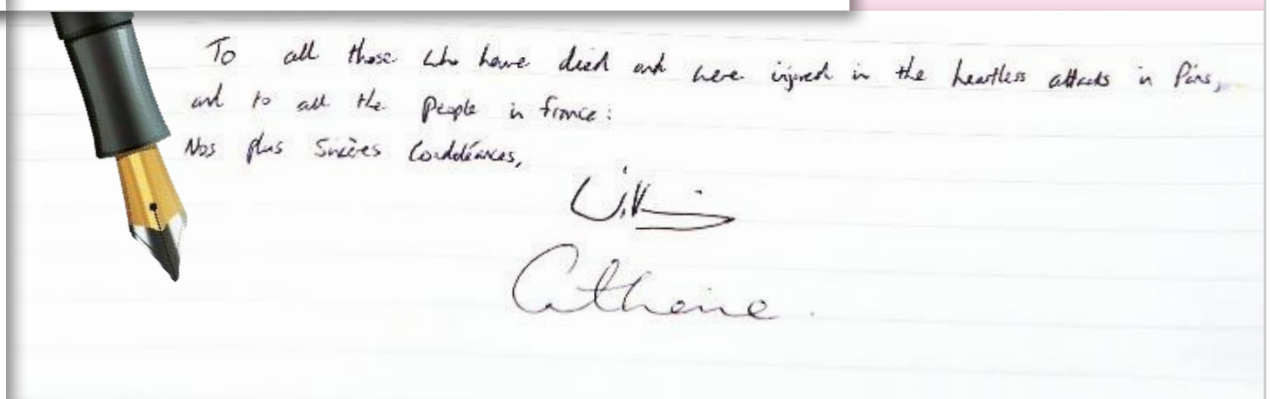 To all those who have died and were injured in the heartless attacks in Paris,
and to all the People in France:
Nos plus Sincères Condoléances,
William
Catherine.